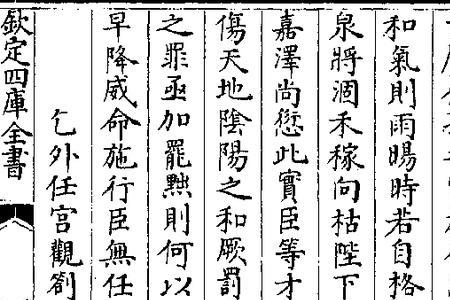 和氣則雨暘時若自格
泉將涸禾稼向枯陛下
嘉澤尚愆此實臣等才
傷天地陰陽之和厥罰
之罪亟加罷黜則何以
早降威命施行臣無任
乞外任宫觀劄
欽定四庫全書